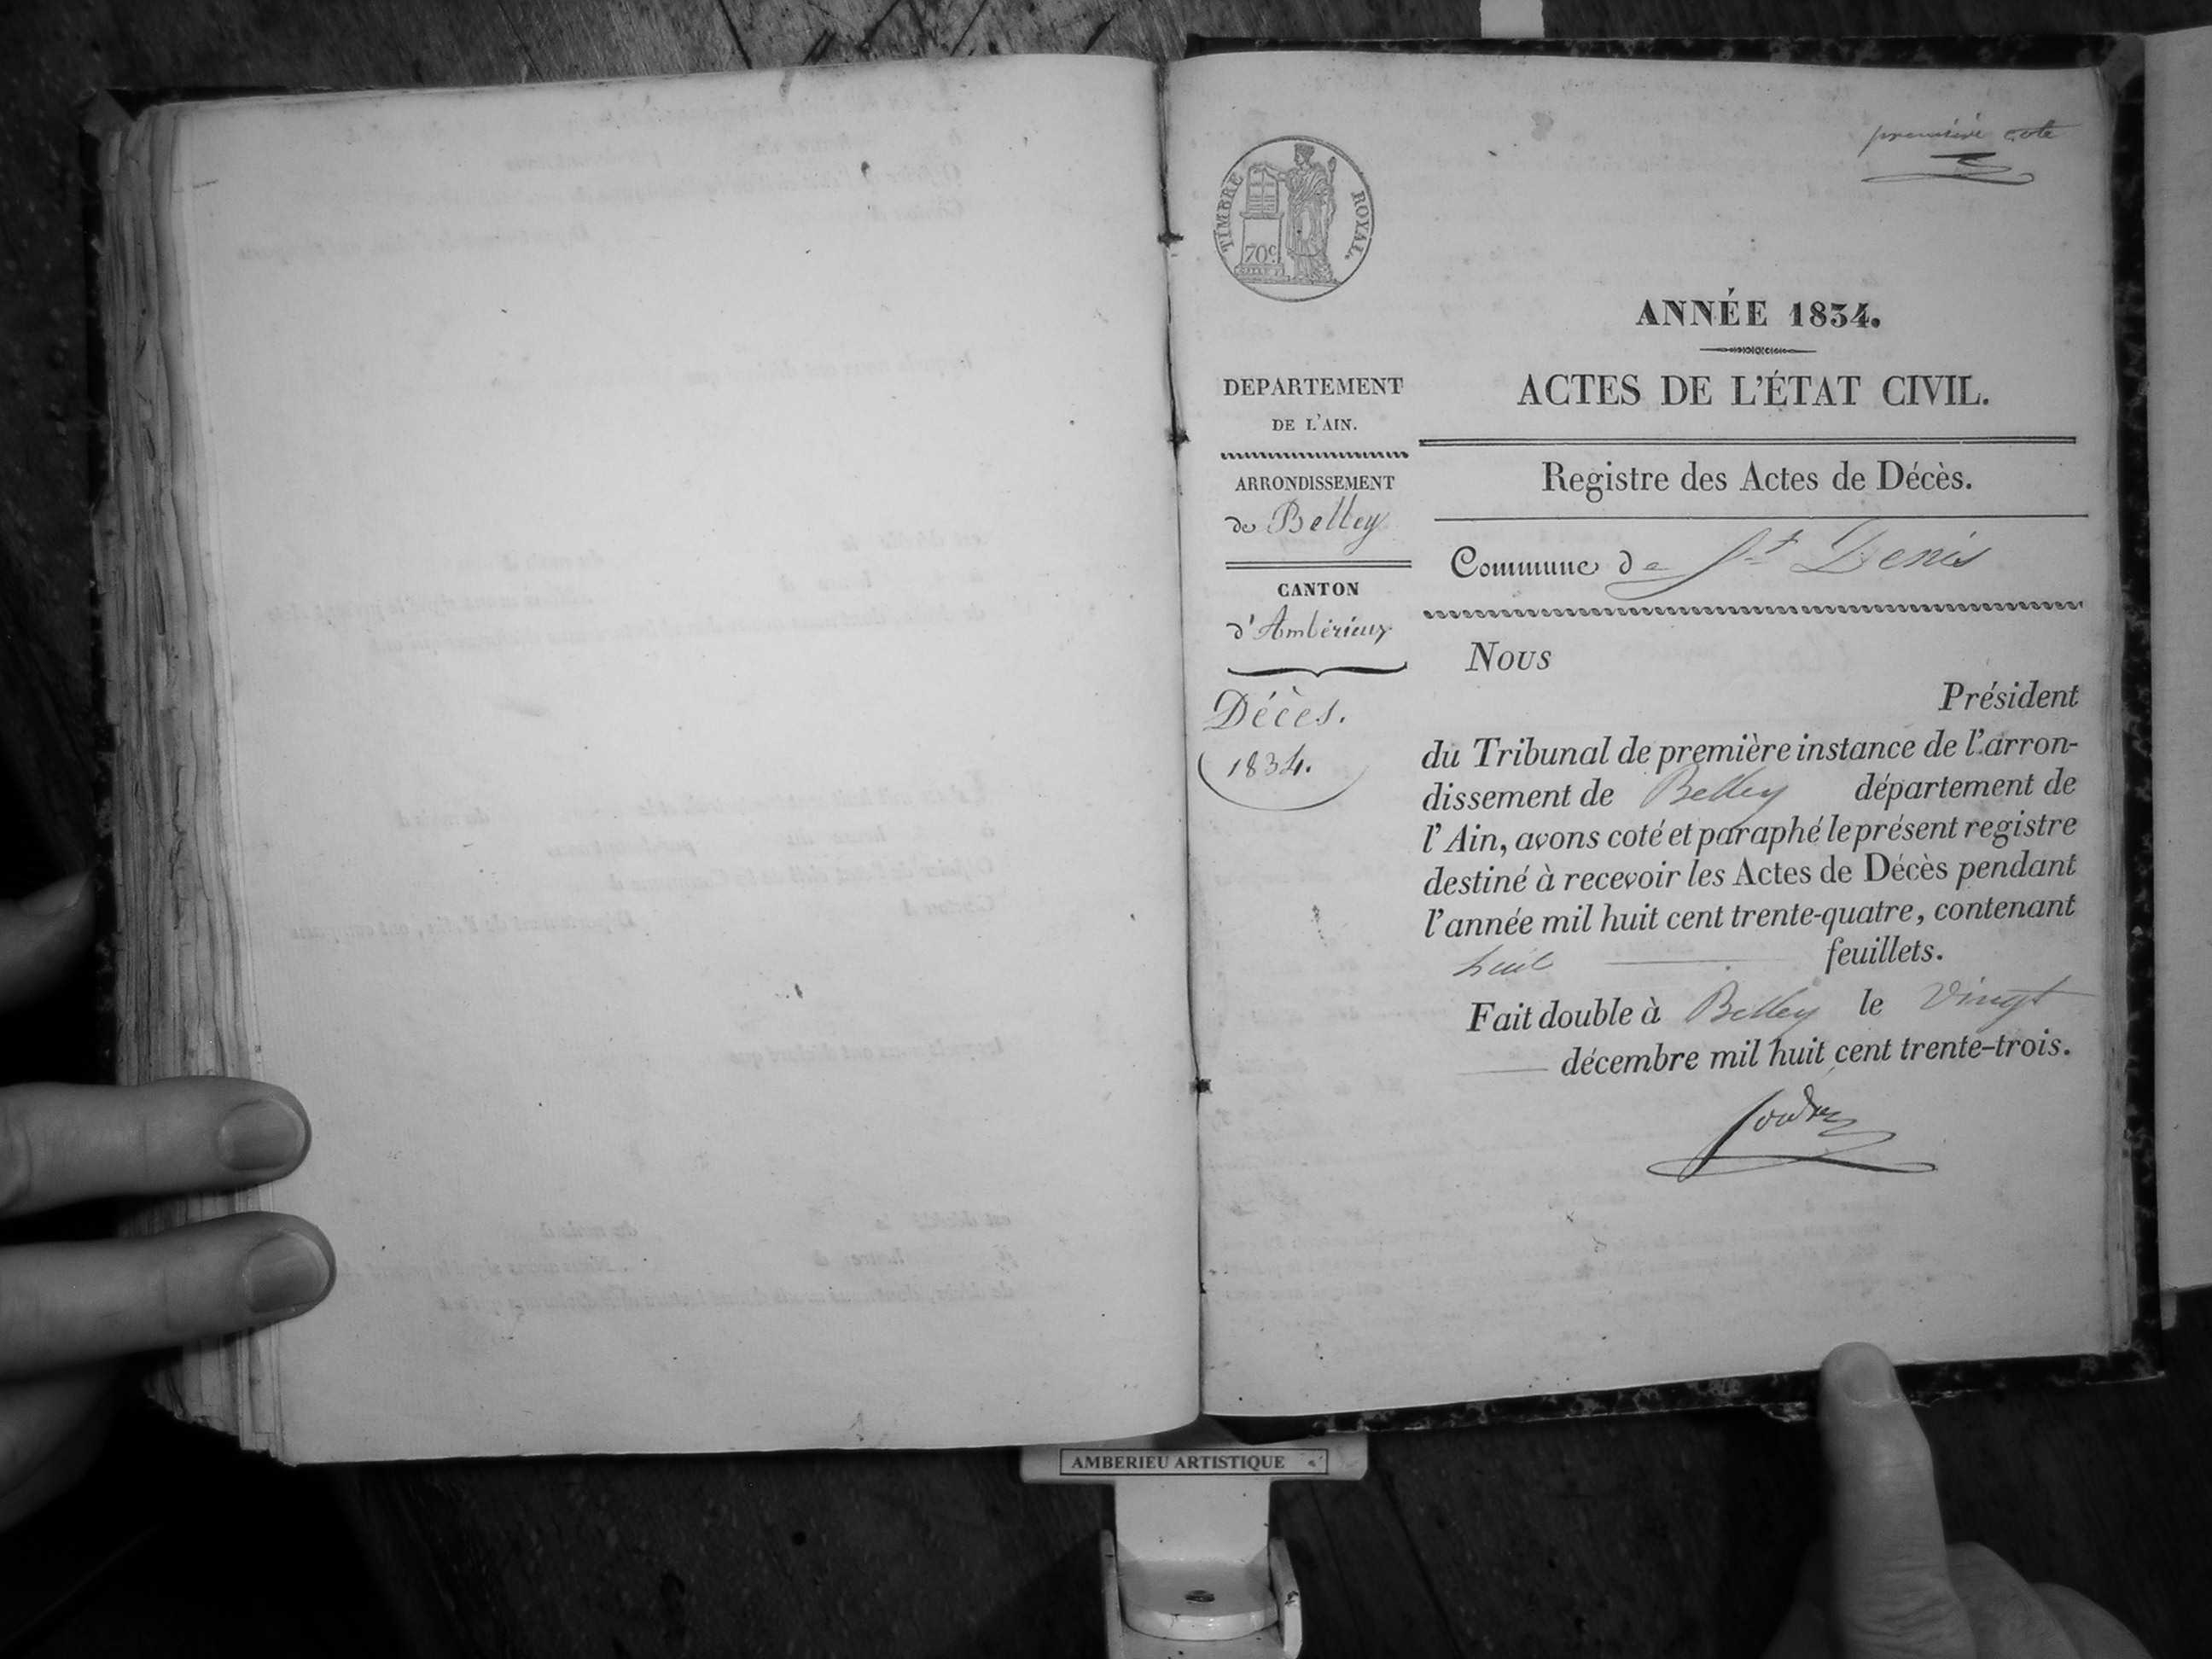 première cote
TIMBRE ROYAL.
70 c.
ANNÉE 1834.
DEPARTEMENT
DE L'AIN.
ARRONDISSEMENT
de Belley
CANTON
d'Ambérieux
Décès.
1834.
ACTES DE L'ÉTAT CIVIL.
Registre des Actes de Décès.
Commune de St Denis
Nous
Président
du Tribunal de première instance de l'arron-
dissement de Belley département de
l'Ain, avons coté et paraphé le présent registre
destiné à recevoir les Actes de Décès pendant
l'année mil huit cent trente-quatre, contenant
huit feuillets.
Fait double à Belley le vingt
décembre mil huit cent trente-trois.
AMBERIEU ARTISTIQUE